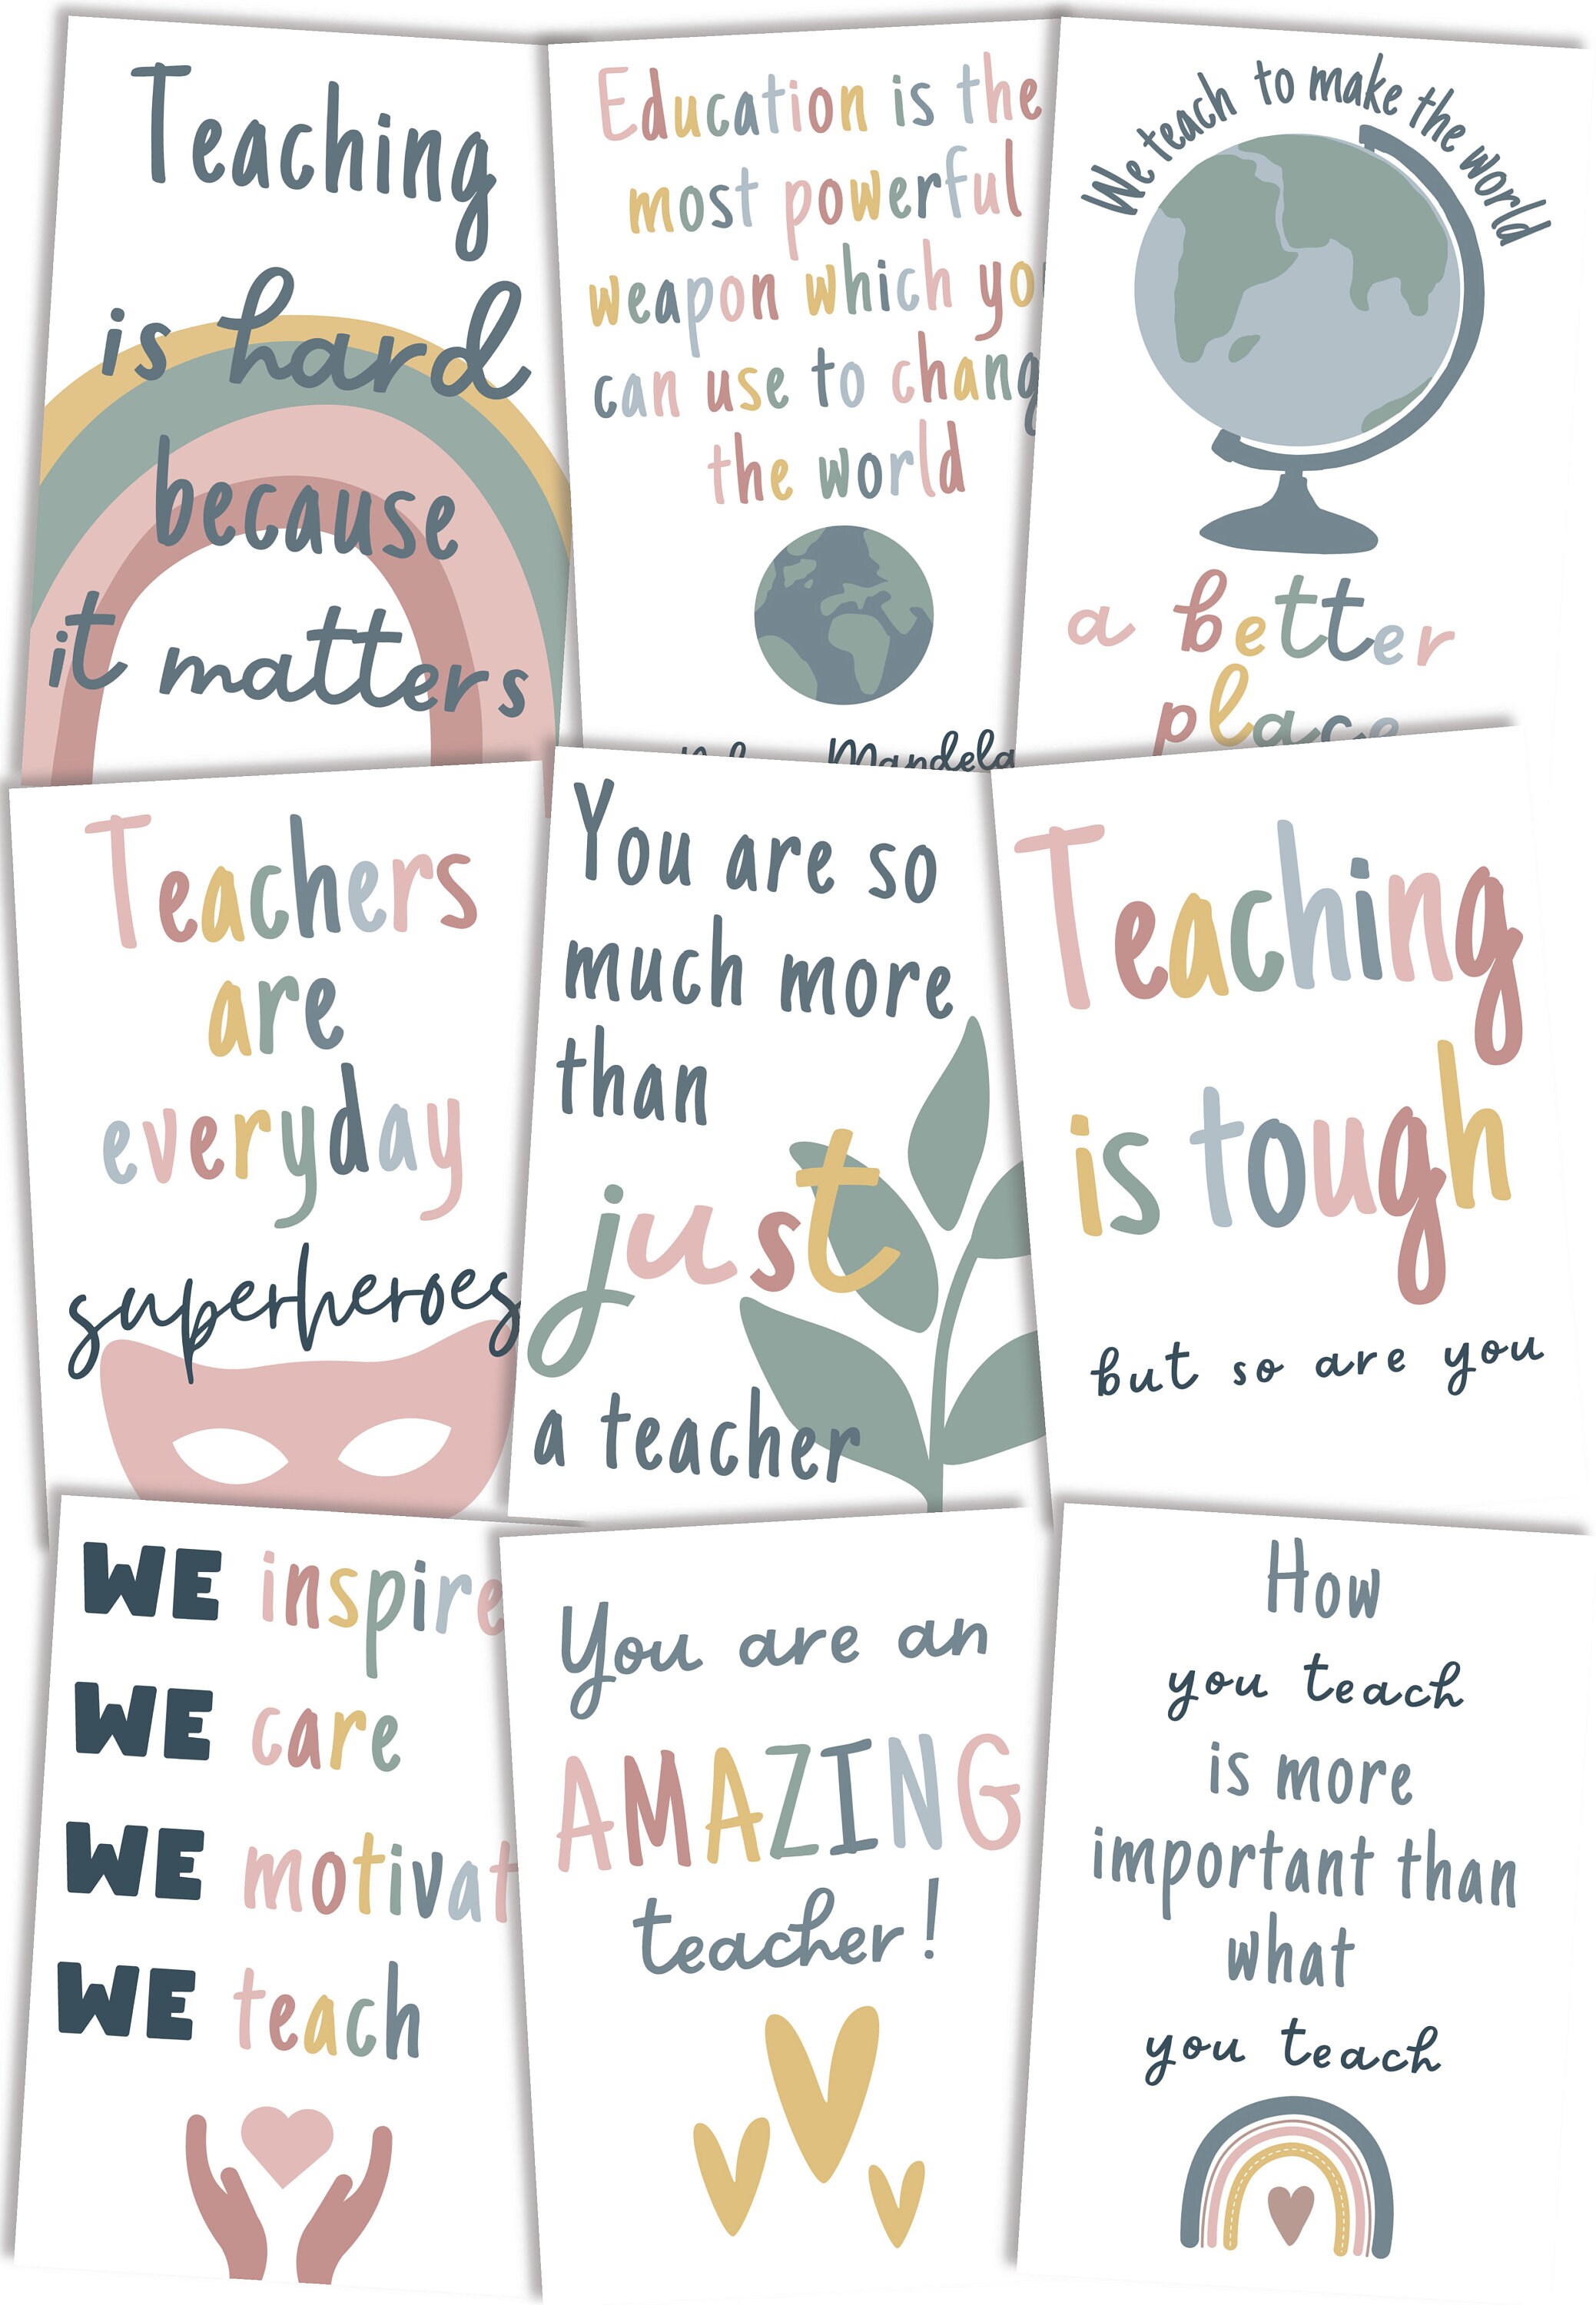 Teaching
is hard
because
it matters
Education is the
most powerful
weapon which yo
can use to chang
the world
Mandela
We teach to make the world
a better
place
Teachers
are
everyday
superheroes
You are so
much more
than
just
a teacher
Teaching
is tough
but so are you
WE inspire
WE care
WE motivat
WE teach
You are an
AMAZING
teacher!
How
you teach
is more
important than
what
you teach